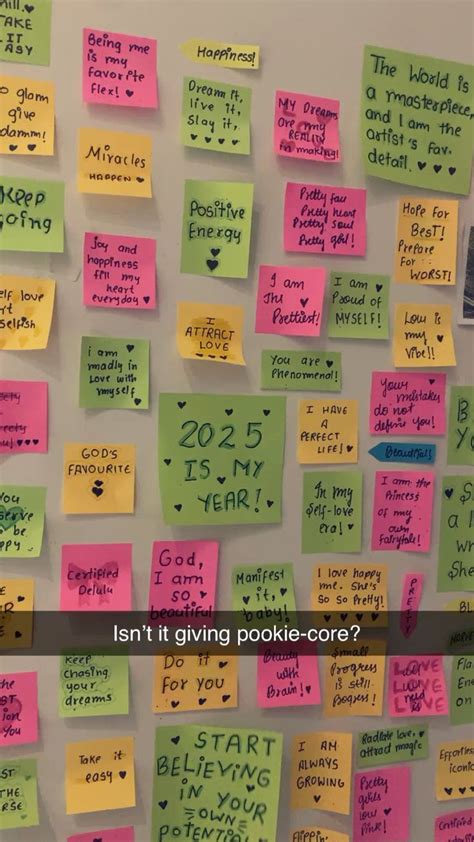 TAKE
IT
EASY
Being me
is my
favorite
flex!
Happiness!
Dream it,
live it,
slay it,
MY Dreams
are my
REALITY
in making!
The World is
a masterpiece,
and I am the
artist's fav.
detail.
glam
give
damm!
Miracles
HAPPEN
Positive
Energy
Pretty face
Pretty heart
Pretty soul
Pretty girl!
Hope For
BEST!
Prepare
For
WORST!
Keep
Going
Joy and
happiness
fill my
heart
everyday
I
ATTRACT
LOVE
I am
The
Prettiest!
I am
Proud of
MYSELF!
Love is
my
Vibe!!
Self love
selfish
i am
madly in
Love with
myself
You are
Phenomenal!
2025
IS MY
YEAR!
I HAVE
A
PERFECT
LIFE!
Your
mistakes
do not
define you!
Beautiful!
GOD'S
FAVOURITE
In my
Self-love
era!
I am the
Princess
of my
own
fairytale!
You
be
Certified
Delulu
God,
I am
so
beautiful
Manifest
it,
baby!
I love happy
me. She's
So So Pretty!
PRETTY
Isn't it giving pookie-core?
Keep
Chasing
your
dreams
Do it
For YOU
Beauty
with
Brain!
Small
Progress
is still
Progress!
LOVE
LOVE
Take it
easy
START
BELIEVING
IN YOUR
OWN
POTENTIAL
I AM
ALWAYS
GROWING
Radiate love,
attract magic
Pretty
girls
love
Pink!
Effortless
iconic
Certified